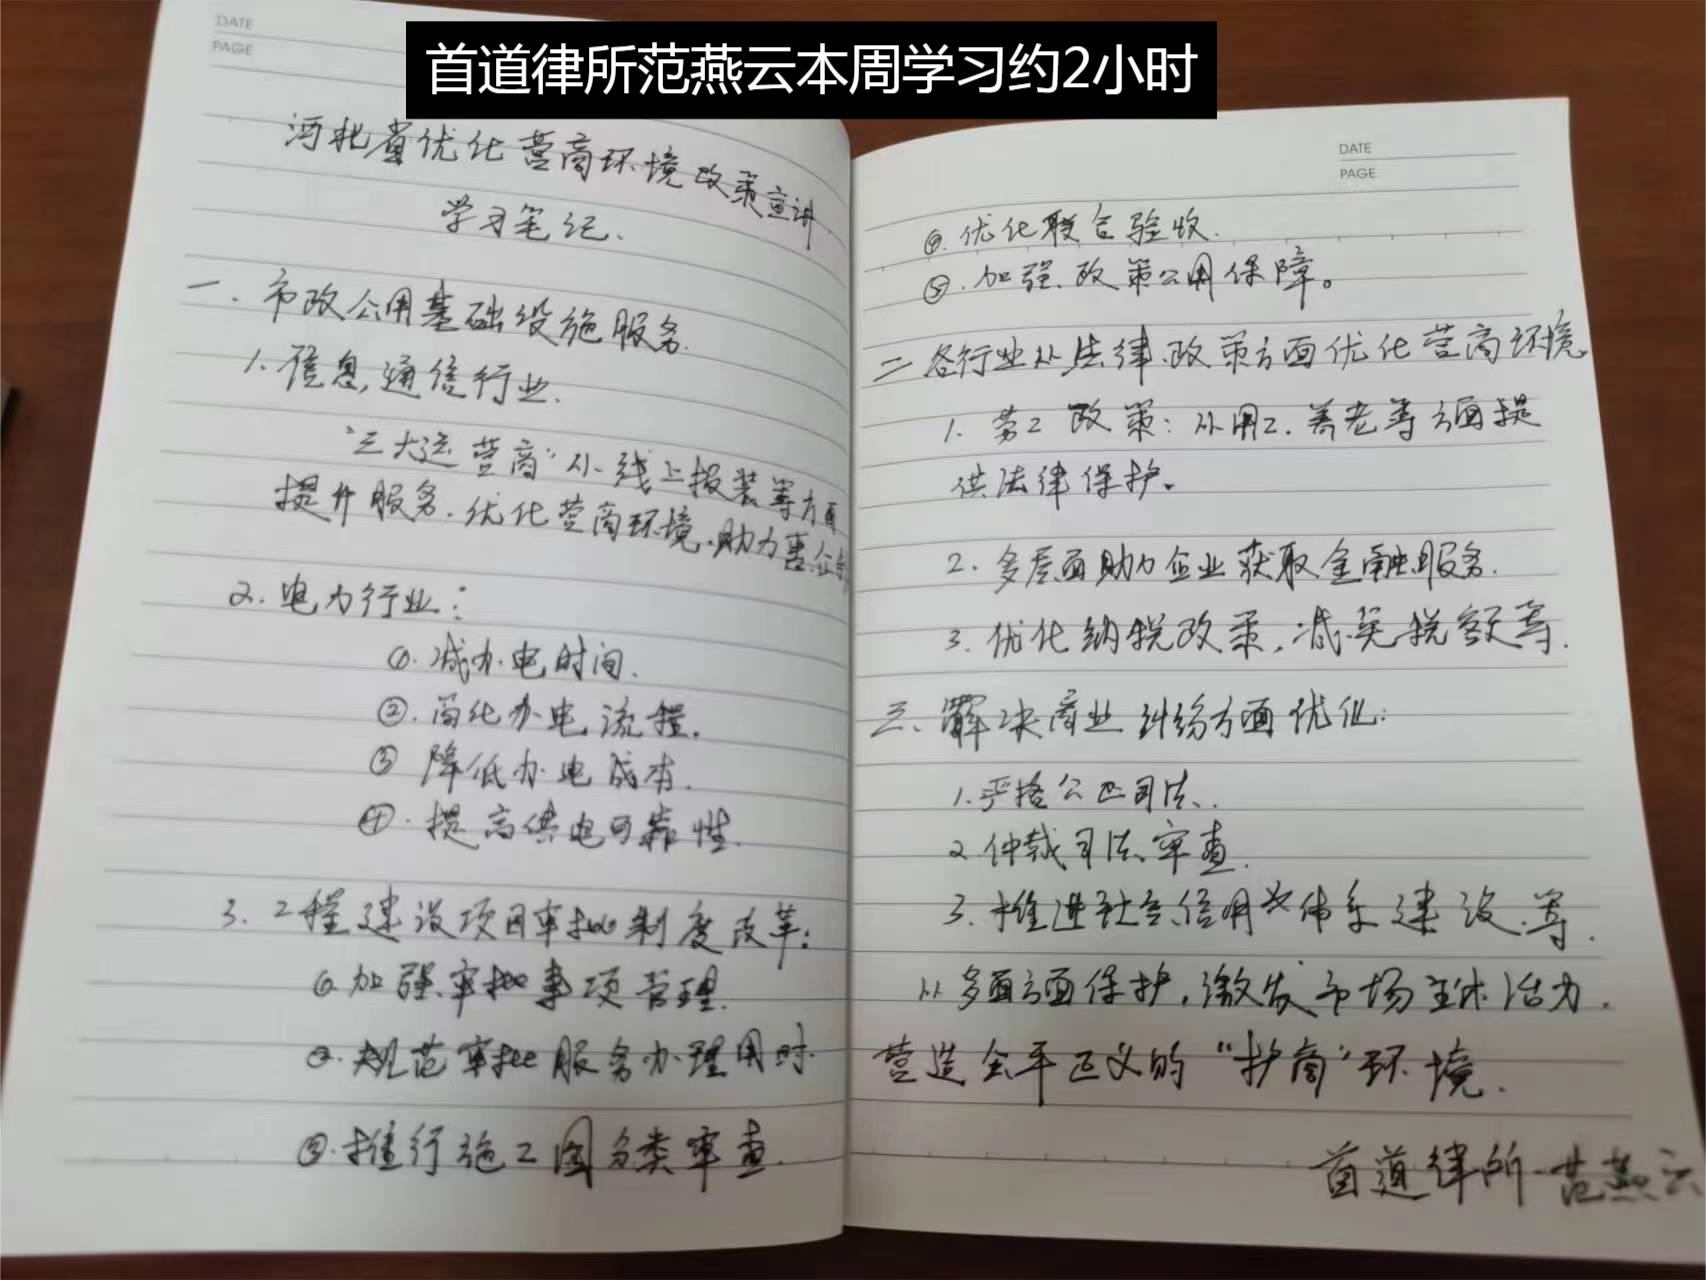 首道律所范燕云本周学习约2小时
DATE
PAGE
河北省优化营商环境政策宣讲
学习笔记.
一.市政公用基础设施服务.
1.信息,通信行业.
"三大运营商"从线上报装等方面
提升服务.优化营商环境.助力惠企
2.电力行业:
①.减办电时间.
②.简化办电流程.
③降低办电成本.
④.提高供电可靠性.
3.工程建设项目审批制度改革:
①加强审批事项管理.
②.规范审批服务办理用时.
③.推行施工图分类审查.
DATE
PAGE
④.优化联合验收.
⑤.加强政策公用保障。
二各行业从法律、政策方面优化营商环境
1.劳工政策:从用工.养老等方面提
供法律保护。
2.多层面助力企业获取金融服务.
3.优化纳税政策,减免税额等.
三、解决商业纠纷方面优化:
1.严格公正司法.
2.仲裁司法审查.
3.推进社会信用体系建设.等.
从多面方面保护,激发市场主体活力.
营造公平正义的"护商"环境.
首道律所 范燕云